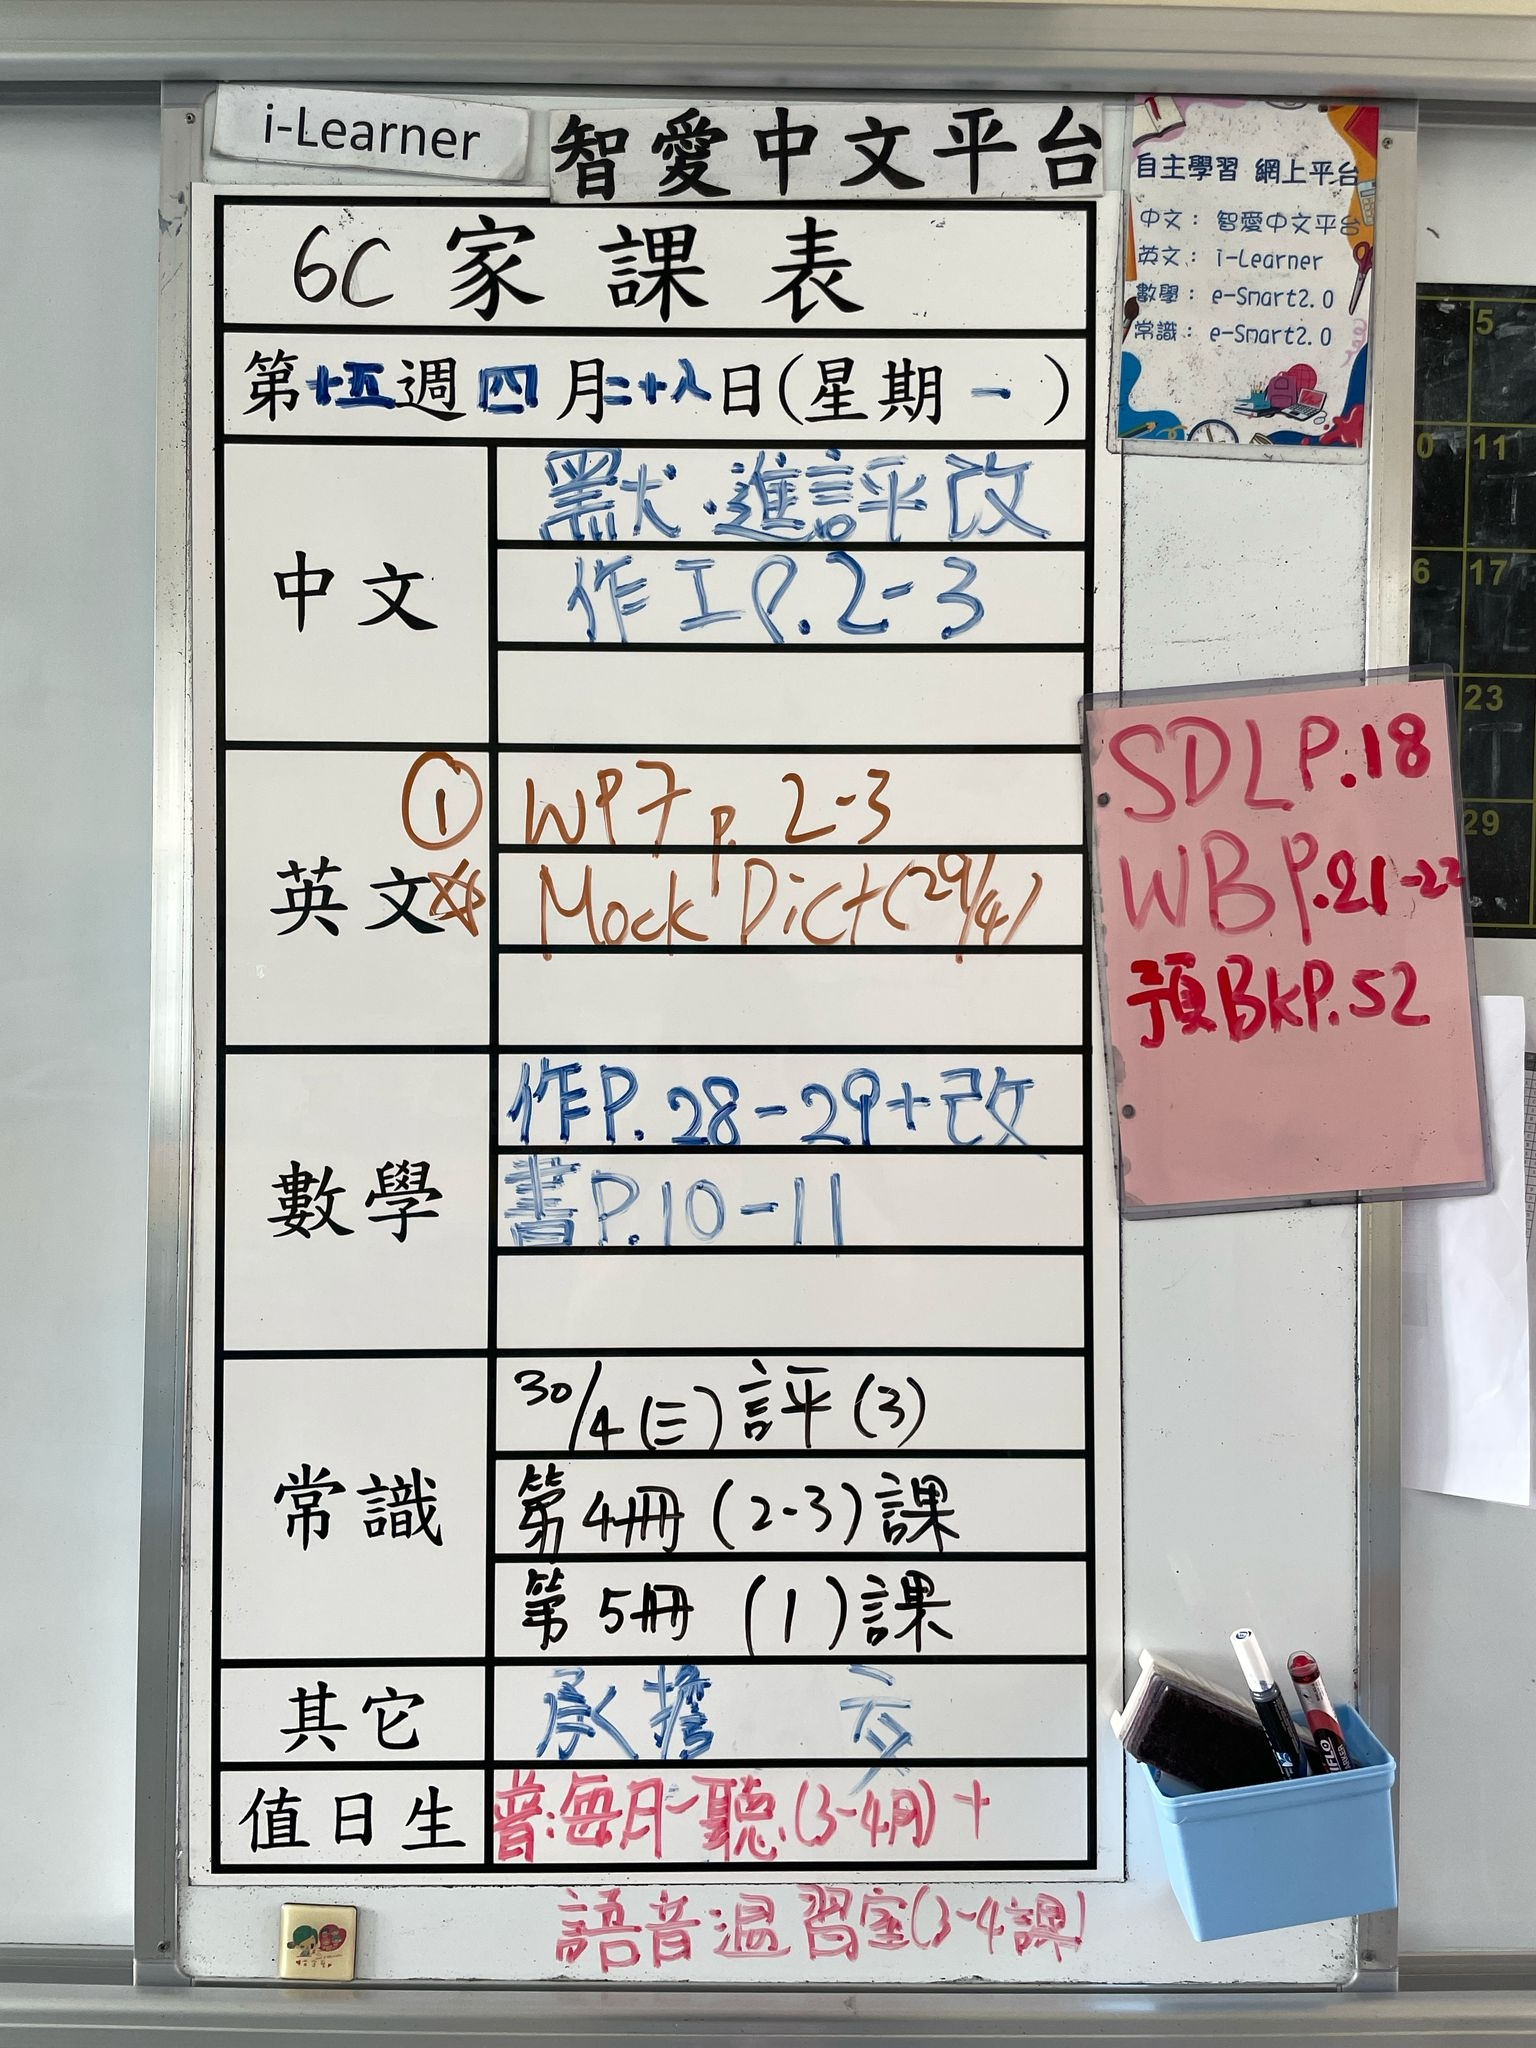 i-Learner
智愛中文平台
自主學習 網上平台
中文： 智愛中文平台
英文： i-Learner
數學： e-Smart2.0
常識： e-Smart2.0
6C 家課表
第十五週 四月二十八日(星期一)
中文
默．進評改
作工P.2-3
英文
① WP7 p. 2-3
☆ Mock Dict (29/4)
數學
作P.28-29+改
書P.10-11
常識
30/4(三)評(3)
第4冊(2-3)課
第5冊(1)課
其它
承擔 交
值日生
普：每月一聽(3-4月)+
語音溫習室(3-4課)
SDL P.18
WB P.21-22
預BKP.52
5
11
6 17
23
29